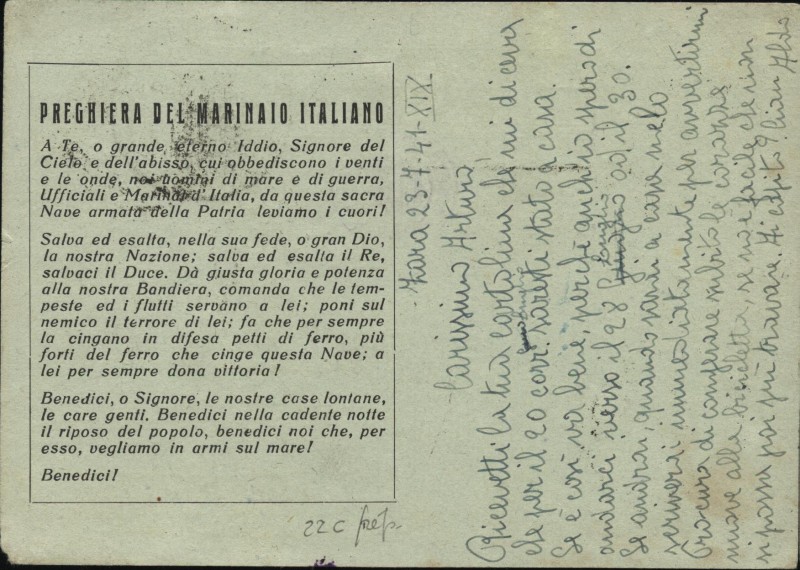 PREGHIERA DEL MARINAIO ITALIANO
A Te, o grande eterno Iddio, Signore del
Cielo e dell'abisso, cui obbediscono i venti
e le onde, noi uomini di mare e di guerra,
Ufficiali e Marinai d'Italia, da questa sacra
Nave armata della Patria leviamo i cuori!
Salva ed esalta, nella sua fede, o gran Dio,
la nostra Nazione; salva ed esalta il Re,
salvaci il Duce. Dà giusta gloria e potenza
alla nostra Bandiera, comanda che le tem-
peste ed i flutti servano a lei; poni sul
nemico il terrore di lei; fa che per sempre
la cingano in difesa petti di ferro, più
forti del ferro che cinge questa Nave; a
lei per sempre dona vittoria!
Benedici, o Signore, le nostre case lontane,
le care genti. Benedici nella cadente notte
il riposo del popolo, benedici noi che, per
esso, vegliamo in armi sul mare!
Benedici!
22 C
Zara 23-7-41-XIX
Carissimo Arturo
Ricevetti la tua cartolina che mi diceva
che per il 20 corr. saresti stato a casa.
Se è così va bene, perché anch'io spero di
andarci verso il 28 luglio od il 30.
Se andrai, quando sarai a casa
scrivermi immediatamente per avvertirmi
Procura di comprare subito le
nuove alla bicicletta, se no è facile che non
si possa poi più trovare. Hai capito? Ciao Aldo